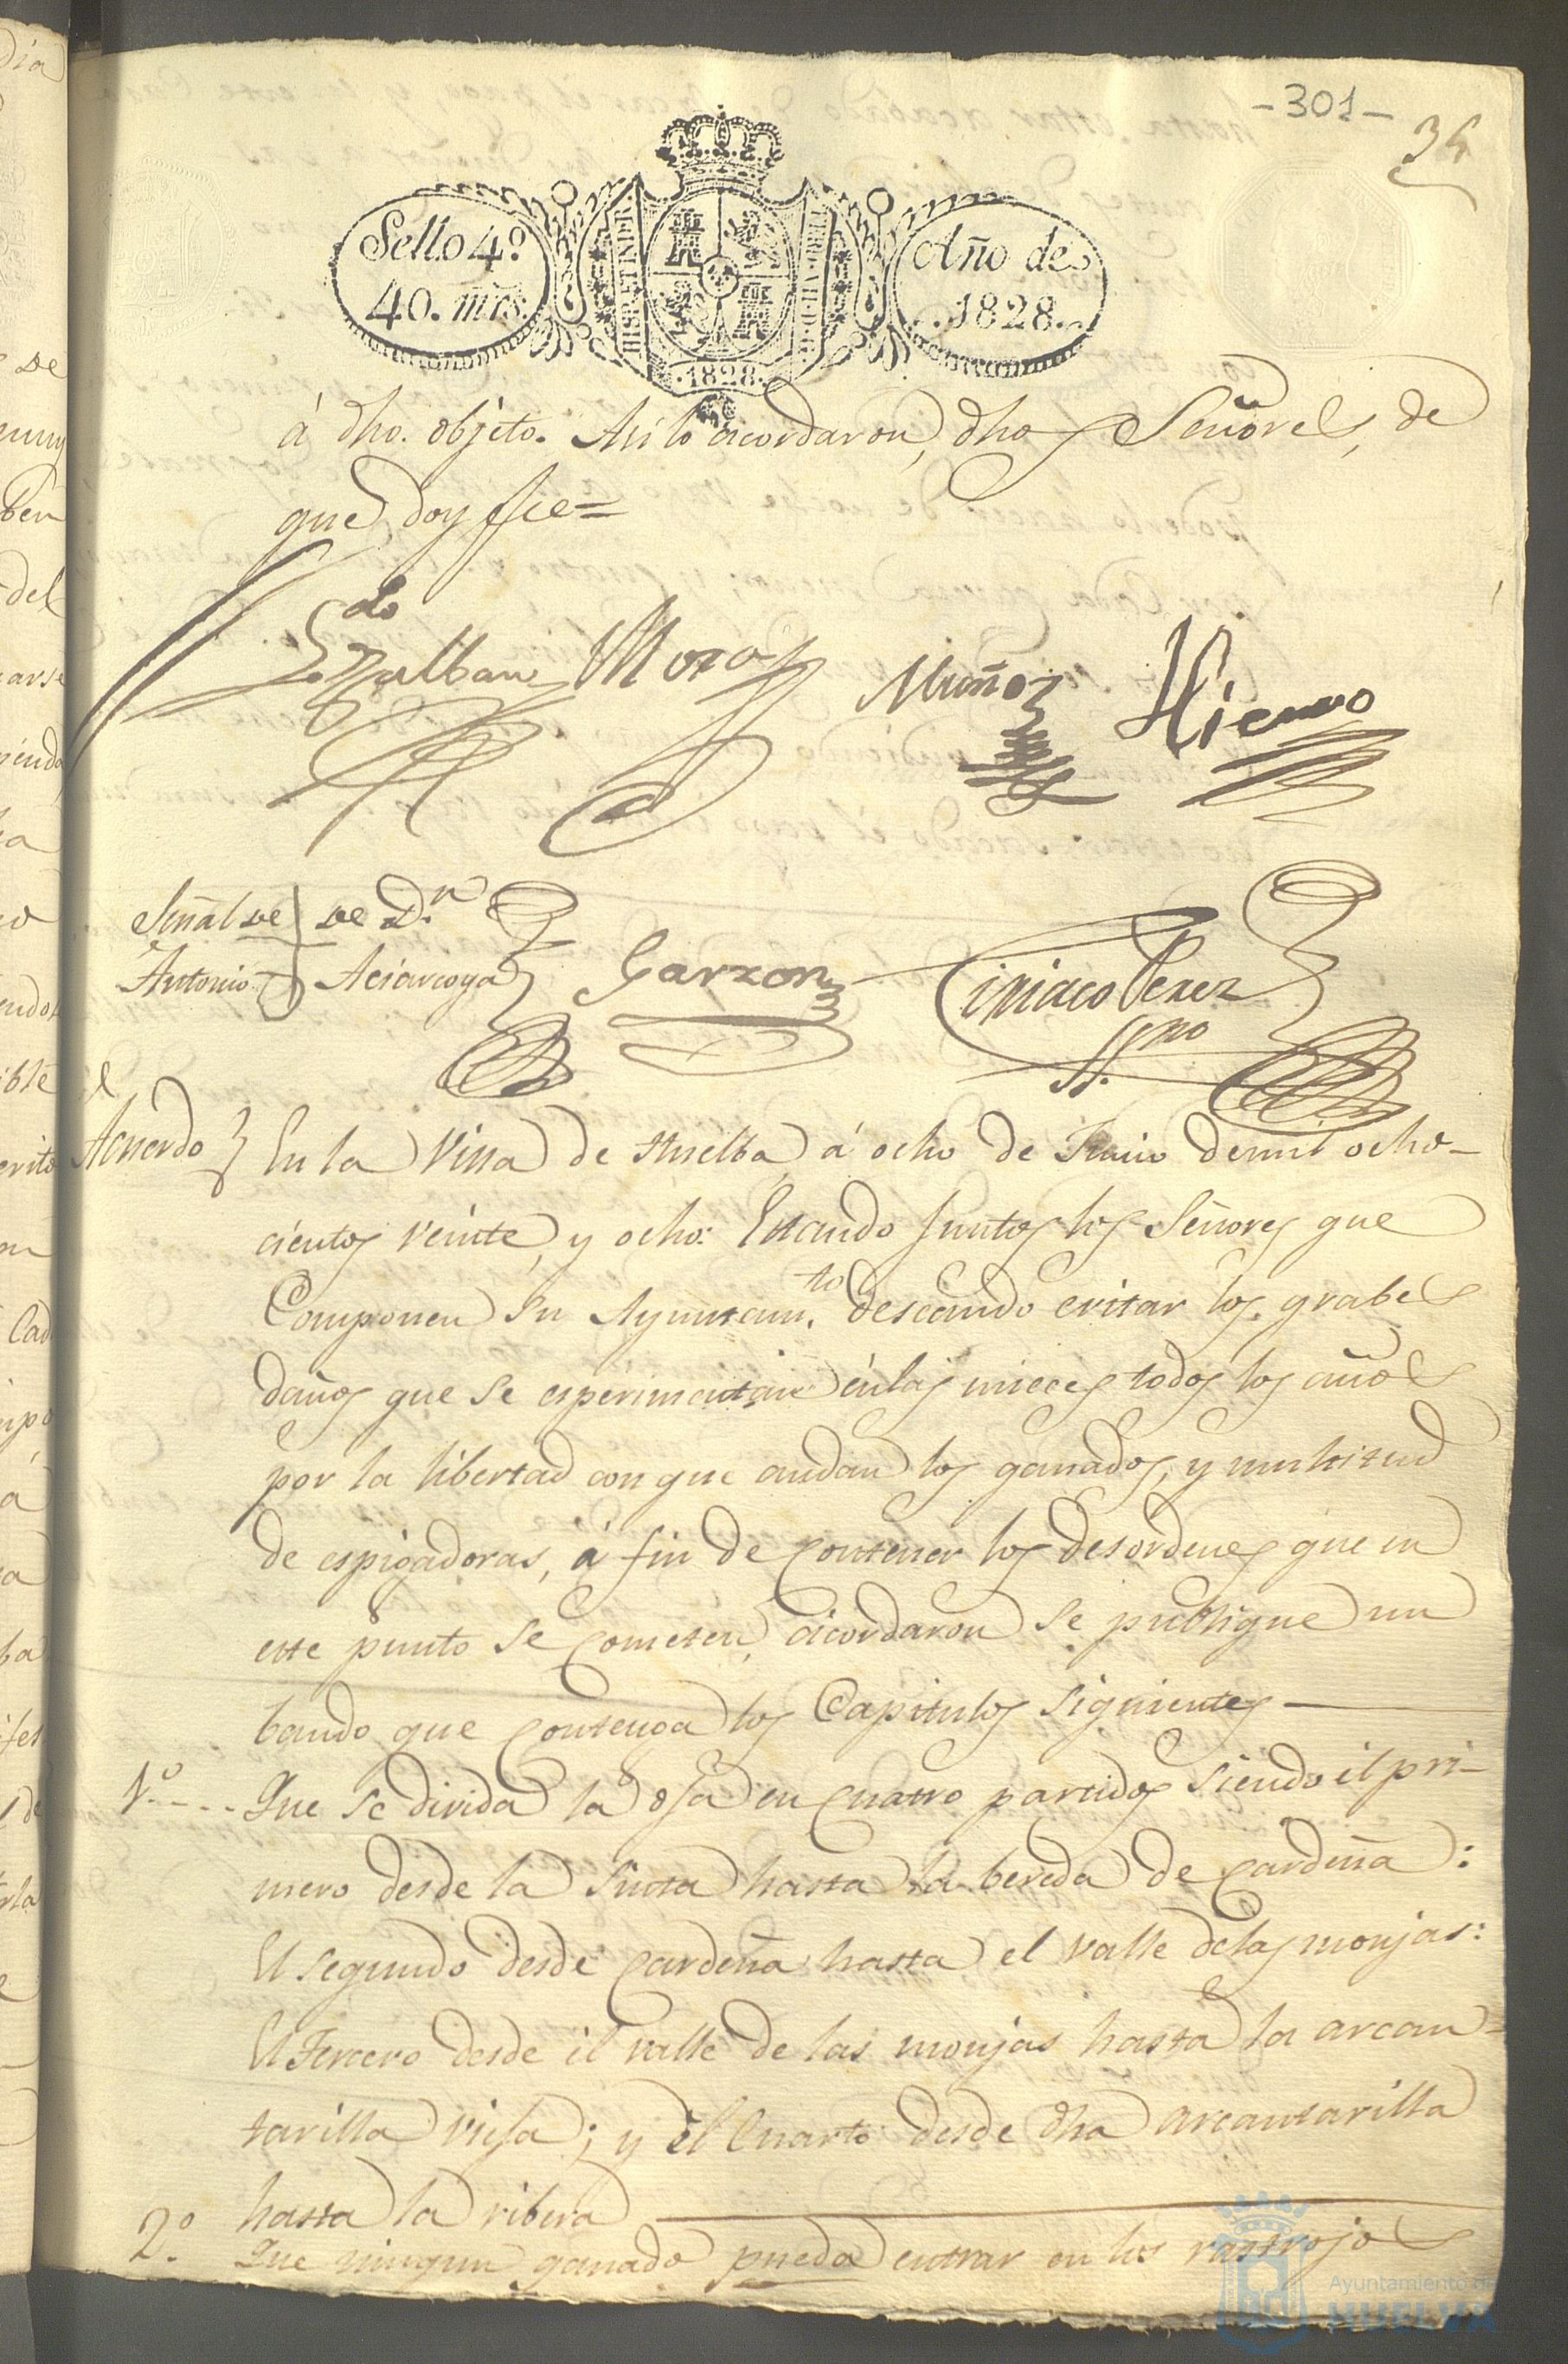 -301-
34
Sello 4º
40. mrs.
Año de
1828.
.1828.
á dho. objeto. Asi lo acordaron, dhos Señores, de
que doy fie=
Ldo
Zalban Moro Muñoz Hierro
Señal de de Dn
Antonio
Garzon
Ciriaco Perez
Ssno
Acuerdo En la Villa de Huelba á ocho de Junio de mil ocho-
cientos veinte, y ocho: Estando juntos los Señores que
Componen su Ayuntam.to deseando evitar los grabes
daños que se esperimentan én las mieces todos los años
por la libertad con que andan los ganados, y multitud
de espigadoras, á fin de contener los desordenes que en
este punto se cometen, acordaron se publique un
bando que contenga los Capitulos siguientes
1º.... Que se divida la oja en cuatro partidos siendo él pri-
mero desde la Sinta hasta la bereda de Cardeña:
El segundo desde Cardeña hasta el valle de las monjas:
El Tercero desde él valle de las monjas hasta la arcan-
tarilla vieja; y él Cuarto desde dha arcantarilla
hasta la ribera
2º. Que ningun ganado pueda entrar en los rastrojos
Ayuntamiento de
HUELVA